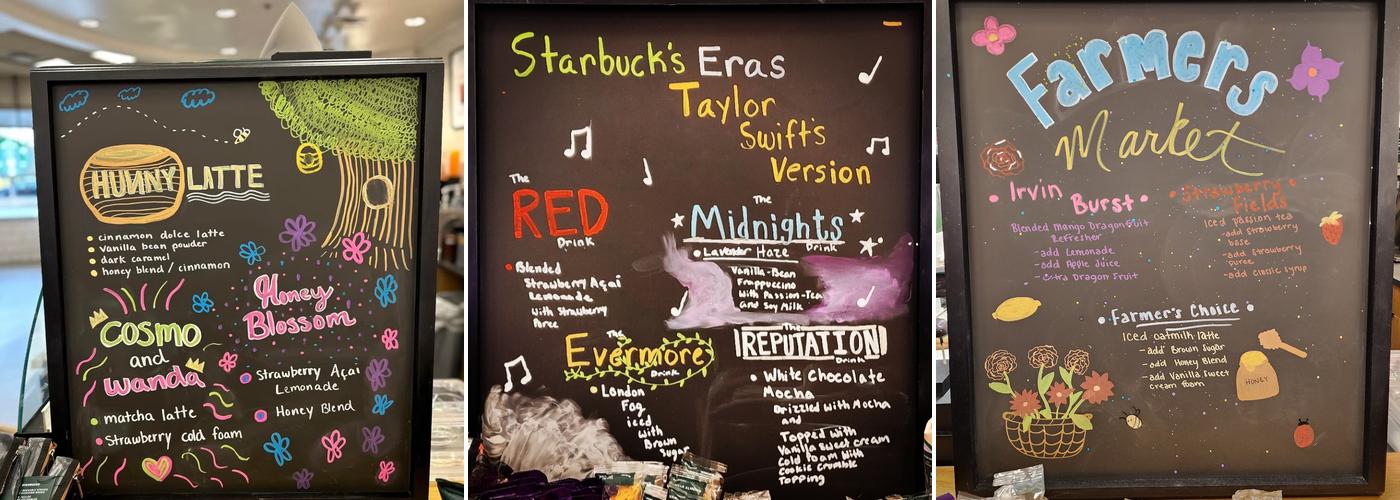 HUNNY LATTE
cinnamon dolce latte
vanilla bean powder
dark caramel
honey blend / cinnamon
Cosmo
and
wanda
matcha latte
strawberry cold foam
Honey
Blossom
Strawberry Açai
Lemonade
Honey Blend
Starbuck's Eras
Taylor
Swift's
Version
The
RED
Drink
Blended
Strawberry Açai
Lemonade
with Strawberry
Puree
The
Midnights
Drink
Lavender Haze
Vanilla-Bean
Frappuccino
with Passion-Tea
and Soy Milk
The
Evermore
Drink
London
Fog
iced
with
Brown
Sugar
The
REPUTATION
Drink
White Chocolate
Mocha
Drizzled with Mocha
and
Topped with
Vanilla sweet cream
Cold Foam with
Cookie Crumble
Topping
Farmers
Market
Irvin
Burst
Blended Mango Dragonfruit
Refresher
-add Lemonade
-add Apple Juice
-Extra Dragon Fruit
Strawberry
Fields
Iced passion tea
-add strawberry
base
-add strawberry
puree
-add classic syrup
Farmer's Choice
Iced oatmilk latte
-add Brown Sugar
-add Honey Blend
-add Vanilla Sweet
cream foam
HONEY